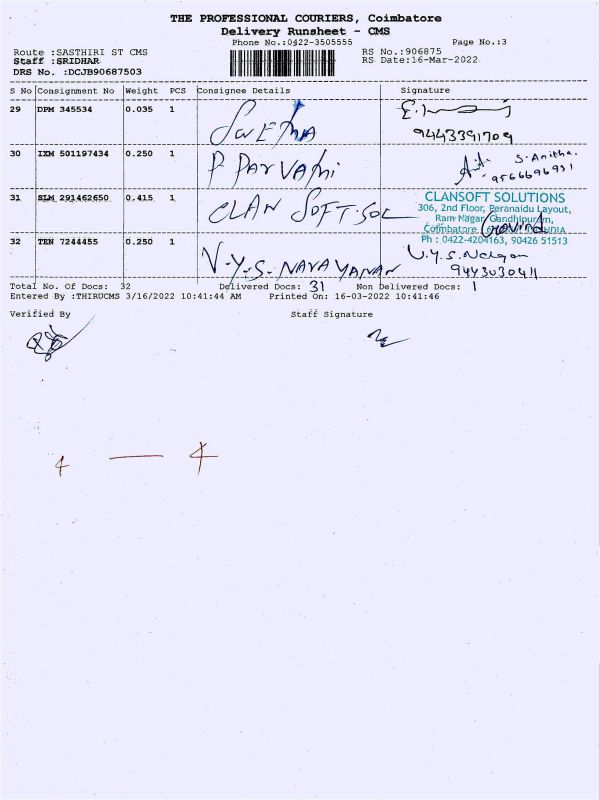 THE PROFESSIONAL COURIERS, Coimbatore
Delivery Runsheet - CMS
Phone No.:0422-3505555 Page No.:3
Route :SASTHIRI ST CMS RS No.:906875
Staff :SRIDHAR RS Date:16-Mar-2022
DRS No. :DCJB90687503
S No Consignment No Weight PCS Consignee Details Signature
29 DPM 345534 0.035 1 SWETHA
9443391709
30 IXM 501197434 0.250 1 P PARVATHI S.Anitha.
9566696931
31 SLM 291462650 0.415 1 CLAN SOFT.SOL CLANSOFT SOLUTIONS
306, 2nd Floor, Peranaidu Layout,
Ram Nagar, Gandhipuram,
Coimbatore INDIA
Govind
Ph : 0422-4204163, 90426 51513
32 TEN 7244455 0.250 1 V.Y.S. NARAYANAN V.Y.S.
9443030411
Total No. Of Docs: 32 Delivered Docs: 31 Non Delivered Docs: 1
Entered By :THIRUCMS 3/16/2022 10:41:44 AM Printed On: 16-03-2022 10:41:46
Verified By Staff Signature
4 — 4